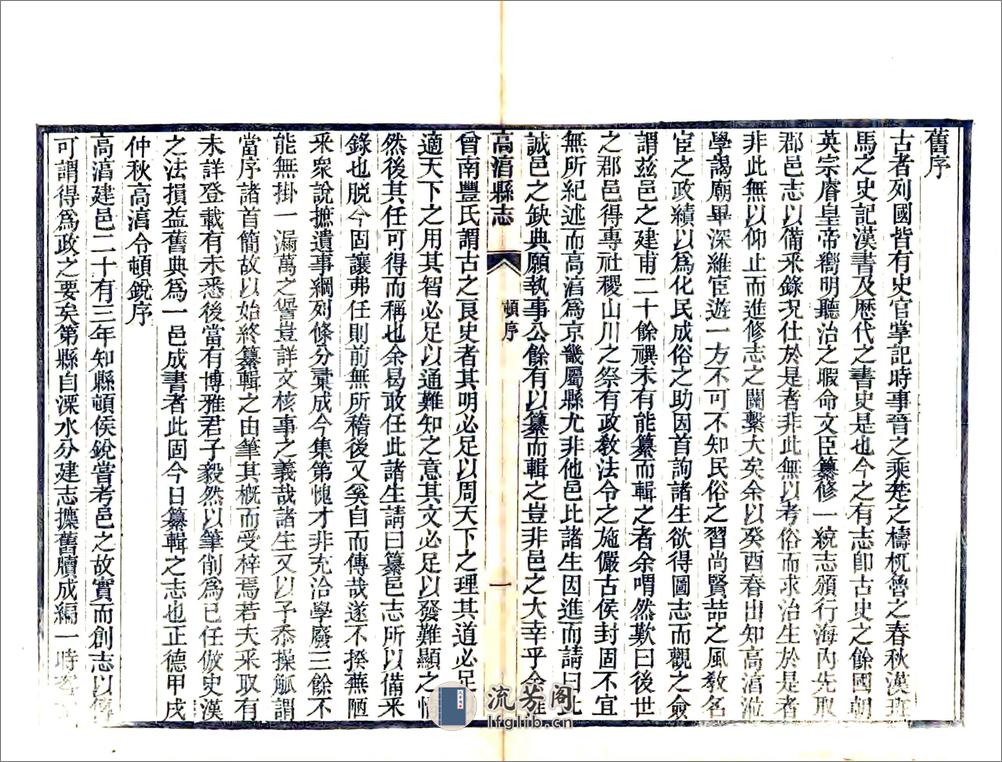 舊序
古者列國皆有史官掌記時事晉之乘楚之檮杌魯之春秋漢班
馬之史記漢書及歷代之書史是也今之有志卽古史之餘國朝
英宗睿皇帝嚮明聽治之暇命文臣纂修一統志頒行海內先取
郡邑志以備釆錄況仕於是者非此無以考俗而求治生於是者
非此無以仰止而進修志之關繫大矣余以癸酉春出知高淳涖
學謁廟畢深維宦遊一方不可不知民俗之習尚賢喆之風敎名
宦之政績以爲化民成俗之助因首詢諸生欲得圖志而觀之僉
謂茲邑之建甫二十餘禩未有能纂而輯之者余喟然歎曰後世
之郡邑得專社稷山川之祭有政敎法令之施儼古侯封固不宜
無所紀述而高淳爲京畿屬縣尤非他邑比諸生因進而請曰此
誠邑之缺典願執事公餘有以纂而輯之豈非邑之大幸乎余
高淳縣志
頓序
一
曾南豐氏謂古之良史者其明必足以周天下之理其道必足以
適天下之用其智必足以通難知之意其文必足以發難顯之情
然後其任可得而稱也余曷敢任此諸生請曰纂邑志所以備釆
錄也脫今固讓弗任則前無所稽後又奚自而傳哉遂不揆蕪陋
釆衆說摭遺事綱列條分彚成今集第愧才非充洽學廢三餘不
能無掛一漏萬之譽豈詳文核事之義哉諸生又以予忝操觚謂
當序諸首簡故以始終纂輯之由筆其概而受梓焉若夫釆取有
未詳登載有未悉後當有博雅君子毅然以筆削爲已任倣史漢
之法損益舊典爲一邑成書者此固今日纂輯之志也正德甲戌
仲秋高淳令頓銳序
高淳建邑二十有三年知縣頓侯銳嘗考邑之故實而創志以傳
可謂得爲政之要矣第縣自溧水分建志摭舊牘成編一時
流芳阁
lfglib.cn